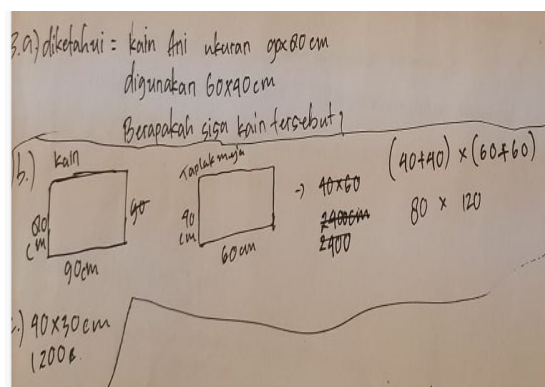 3.a) diketahui = kain Ani ukuran 90x80 cm
digunakan 60x40 cm
Berapakah sisa kain tersebut?
b.) kain
80 cm
90
90cm
Taplak meja
40 cm
60 cm
→ 40x60
2400cm
2400
(40+40) x (60+60)
80 x 120
c.) 40x30cm
1200